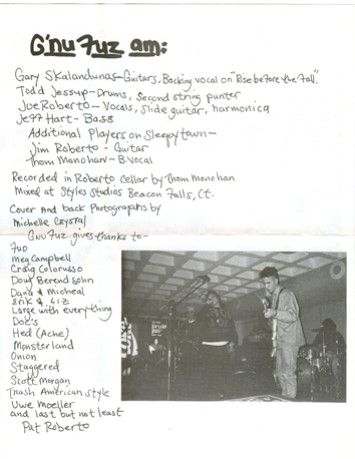 G'nu Fuz am:
Gary Skalandunas-Guitars, Backing vocal on "Rise before the Fall".
Todd Jessup-Drums, second string punter
Joe Roberto-Vocals, slide guitar, harmonica
Jeff Hart-Bass
Additional Players on Sleepytown-
Jim Roberto-Guitar
Thom Monahan-B.Vocal
Recorded in Roberto Cellar by Thom Monahan
Mixed at Styles Studios Beacon Falls, Ct.
Cover and back Photographs by
Michelle Crystal
Gnu Fuz gives thanks to-
7UO
Meg Campbell
Craig Colorusso
Doug Berendsohn
Dana & Micheal
Erik & Liz
Large with everything
Doc's
Hed (Ache)
Monsterland
Onion
Staggered
Scott Morgan
Trash American style
Uwe Moeller
and last but not least
Pat Roberto